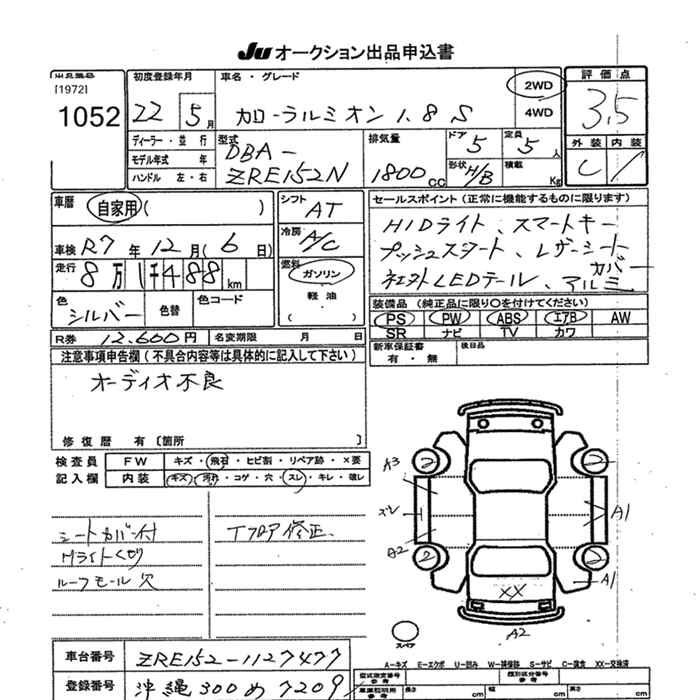 Ju オークション出品申込書
[1972]
1052
初度登録年月
22 5月
車名・グレード
カローラルミオン 1.8 S
2WD
4WD
評価点
3.5
外装 内装
C
ディーラー・並行
モデル年式 年
ハンドル 左・右
型式
DBA-
ZRE152N
排気量
1800cc
ドア 5
形状 H/B
定員 5人
積載 Kg
車歴 自家用( )
車検 R7年12月(6日)
走行 8万1千488km
色 シルバー 色替 色コード
シフト AT
冷房 A/C
燃料 ガソリン
軽油
( )
セールスポイント(正常に機能するものに限ります)
HIDライト、スマートキー
プッシュスタート、レザーシートカバー
社外LEDテール、アルミ
装備品(純正品に限り○を付けてください)
PS PW ABS エアB AW
SR ナビ TV カワ
新車保証書 有・無
後日品
R券 12,600円 名変期限 月 日
注意事項申告欄(不具合内容等は具体的に記入して下さい)
オーディオ不良
修復歴 有〔箇所 〕
検査員 FW キズ・飛石・ヒビ割・リペア跡・×要
記入欄 内装 キズ・汚れ・コゲ・穴・スレ・キレ・破レ
シートカバー付
Hライトくもり
ルーフモール欠
Tフロア修正
A3
スレ
A2
2
2
2
2
A1
A1
XX
A2
スペア
A-キズ E-エクボ U-凹み W-補修跡 S-サビ C-腐食 XX-交換済
車台番号 ZRE152-1127477
登録番号 沖縄300め7209
長さ cm 幅 cm 高さ cm